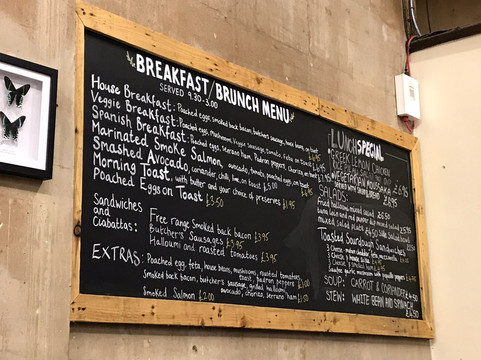 BREAKFAST/BRUNCH MENU
SERVED 9.30-3.00
House Breakfast: Poached eggs, smoked back bacon, butchers sausage, beans, on toast £6.95
Veggie Breakfast: Poached eggs, Mushrooms, Veggie sausage, tomato, Feta on toast
Spanish Breakfast: Poached eggs, Serrano ham, Padron peppers, Chorizo, on toast
Marinated Smoke Salmon, avocado, tomato, poached eggs, on toast
Smashed Avocado, coriander, chilli, lime, on toast £5.50
Morning Toast, with butter and your choice of preserves £1.95
Poached Eggs on Toast £3.50
Sandwiches and Ciabattas:
Free range Smoked back bacon £3.95
Butcher's Sausages £3.95
Halloumi and roasted tomatoes £3.95
EXTRAS: Poached egg, feta, house beans, mushrooms, roasted tomatoes
toast, padron peppers £1.00
Smoked back bacon, butchers sausage, grilled halloumi
avocado, chorizo, serrano ham £1.50
Smoked Salmon £2.00
LUNCH SPECIAL
GREEK LEMON CHICKEN
VEGETARIAN MOUSSAKA £6.95
SERVED WITH SALAD & BREAD £6.95
SALADS:
Fried halloumi mixed salad £6.50
mixed salad plate £4.50
Toasted Sourdough Sandwiches
SOUP: CARROT & CORIANDER £4.50
STEW: WHITE BEAN AND SPINACH
£4.50